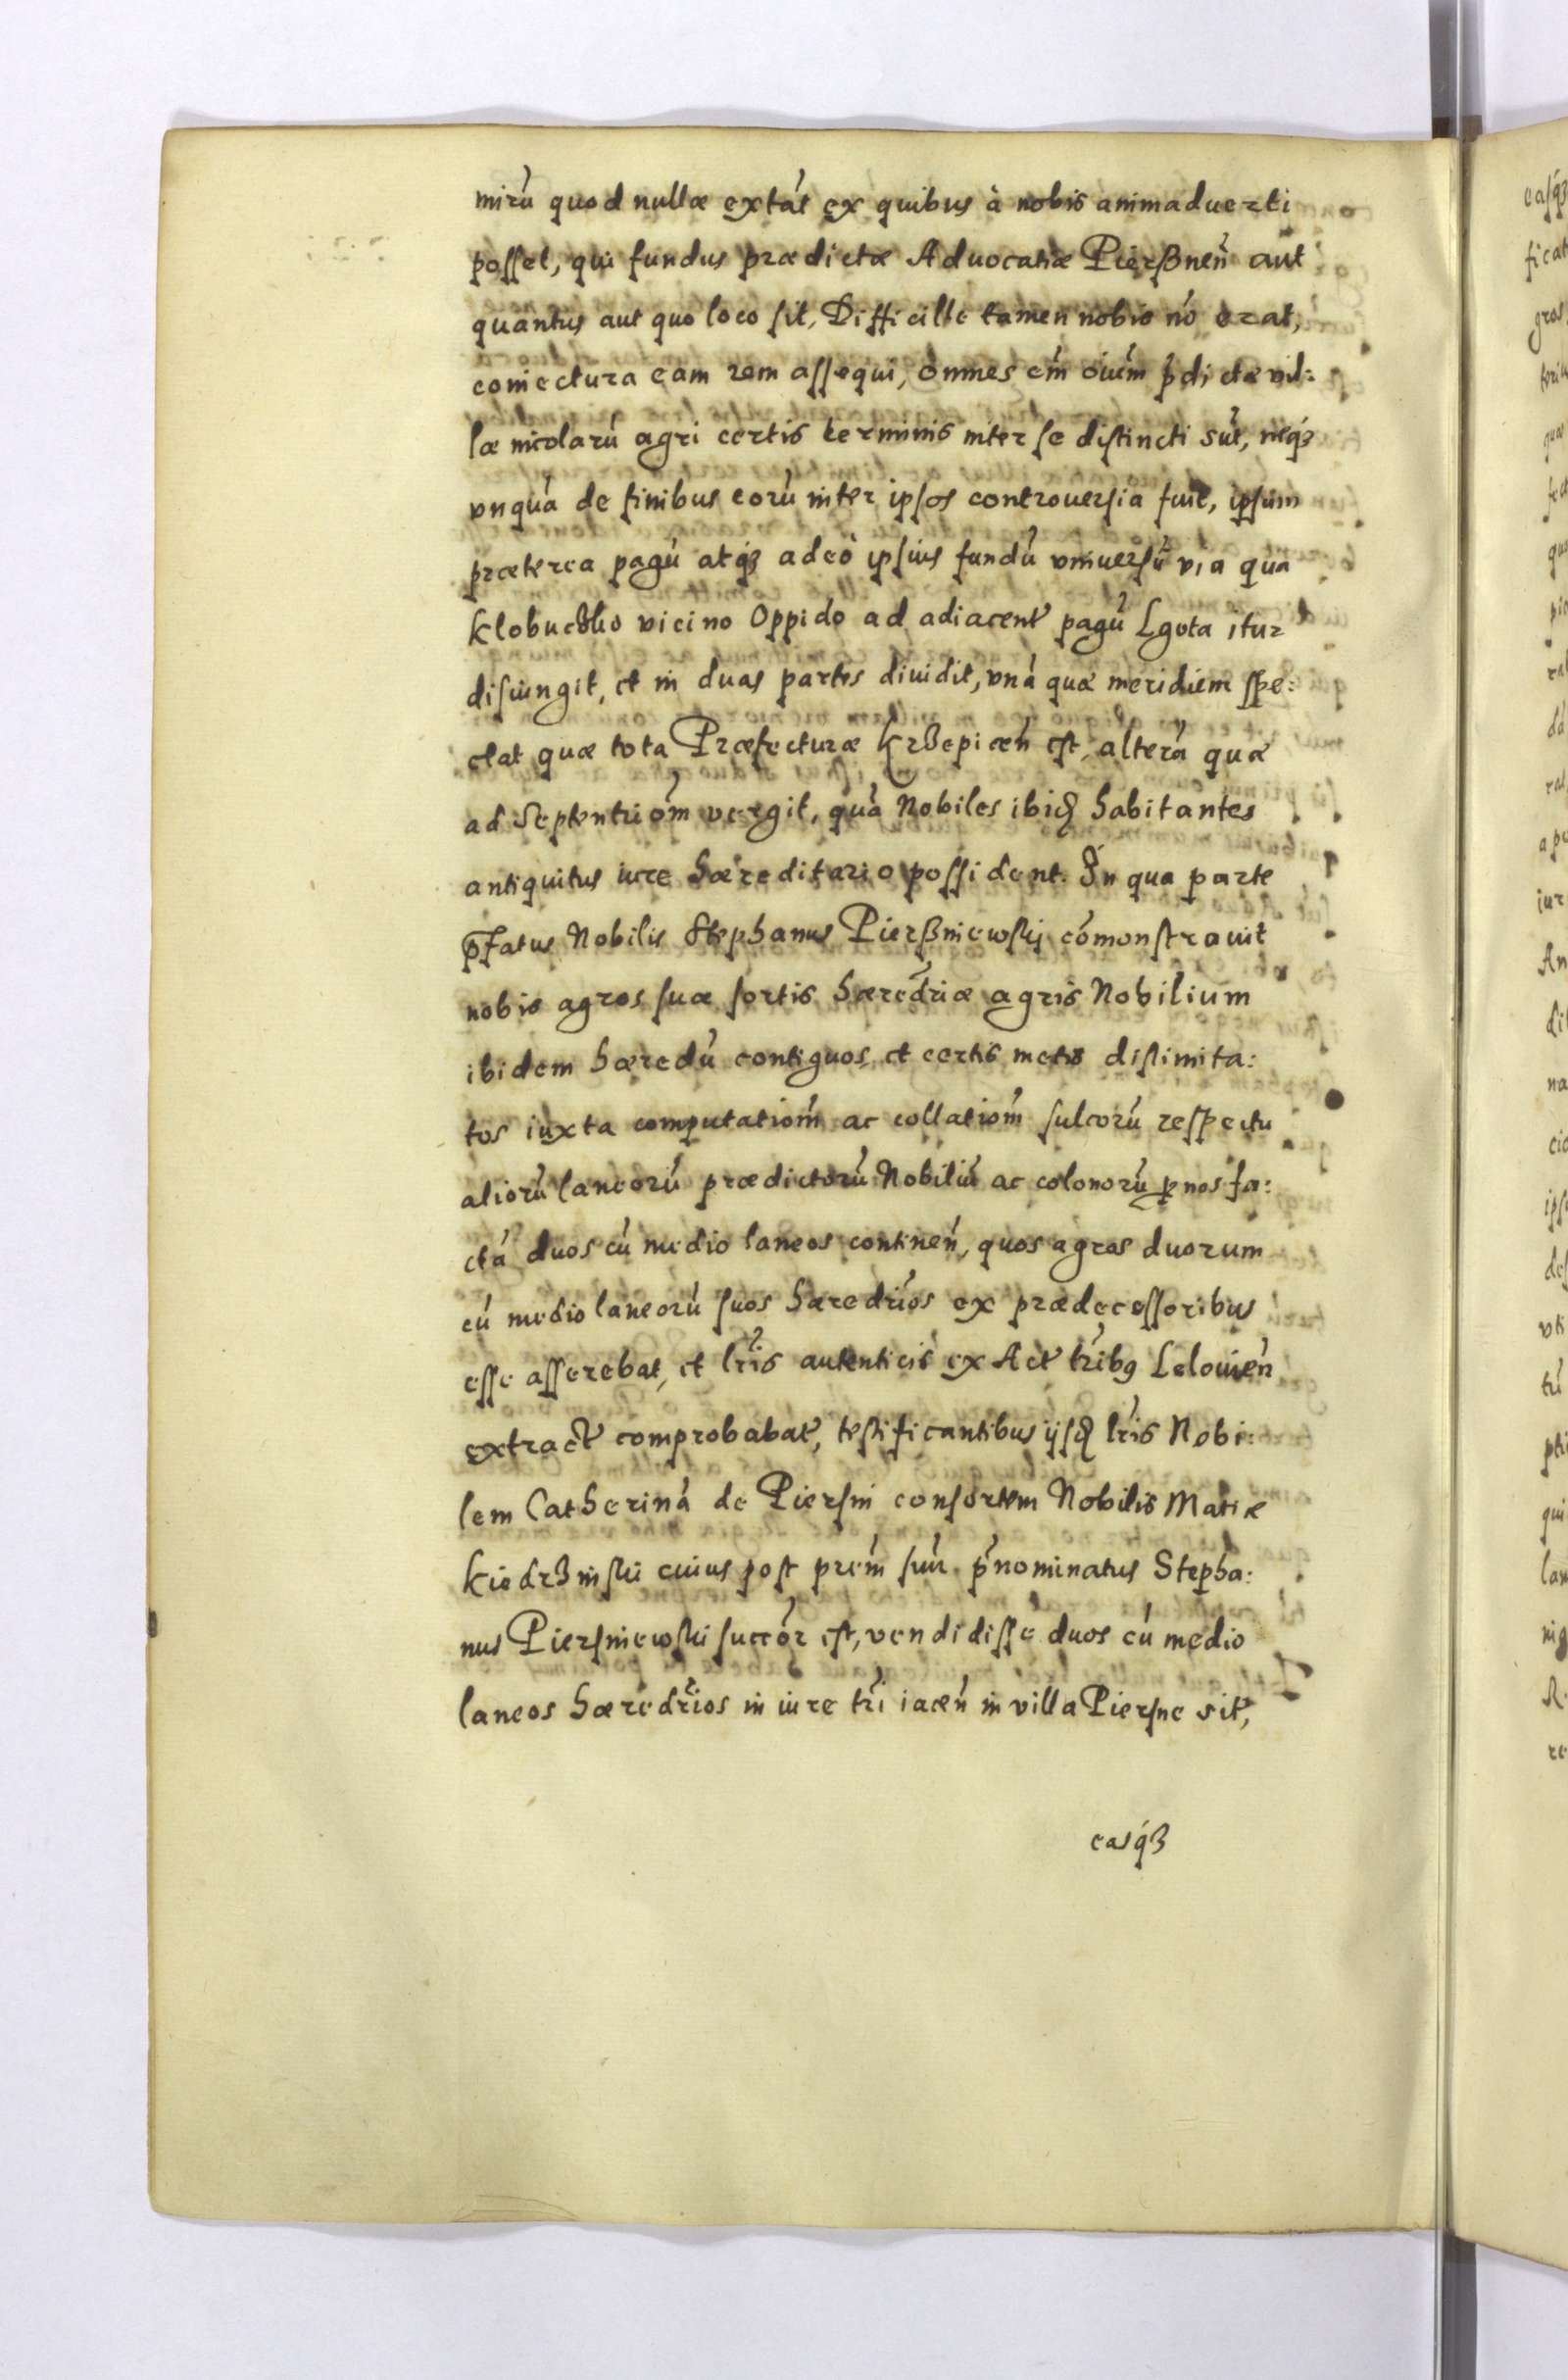 mirũ quod nullæ extãt ex quibus à nobis animaduerti
posset, qui fundus prædictæ Aduocatiæ Pierßneñ aut
quantus aut quo loco sit, Difficille tamen nobis nõ erat,
coniectura eam rem assequi, omnes em̃ oiũm p̃dictæ vil:
læ incolarũ agri certis terminis inter se distincti sũt, neq́ꝫ
vnquã de finibus eorũ inter ipsos controuersia fuit, ipsum
præterea pagũ atq́ꝫ adeò ipsius fundũ vniuersũ via quã
Klobuczko vicino Oppido ad adiacent̃ pagũ Lgota itur
disiungit, et in duas partes diuidit, vnã quæ meridiem spe:
ctat quæ tota Præfecturæ Krzepiceñ est, alterã quæ
ad Septentriom̃ vergit, quã Nobiles ibid̃ habitantes
antiquitus iure hæreditario possident. In qua parte
p̃fatus Nobilis Stephanus Pierßniewskj cõmonstrauit
nobis agros suæ sortis hæredr̃iæ agris Nobilium
ibidem hæredũ contiguos, et certis metis dislimita:
tos iuxta computatiom̃ ac collatiom̃ sulcorũ respectu
aliorũ laneorũ prædictorũ Nobiliũ ac colonorũ ꝑ nos fa:
ctã duos cũ medio laneos contineñ, quos agros duorum
cũ medio laneorũ suos hæredr̃ios ex prædecessoribus
esse asserebat, et lr̃is autenticis ex Act̃ tr̃ibꝰ Lelouieñ
extract̃ comprobabat, testificantibus ijsd̃ lr̃is Nobi:
lem Catherinã de Piersni consortem Nobilis Matiæ
Kiedrzinski cuius post prem̃ suũ p̃nominatus Stepha:
nus Piersniewski succõr est, vendidisse duos cũ medio
laneos hæredr̃ios in iure tr̃i iaceñ in villa Piersne sit̃,
easq́ꝫ